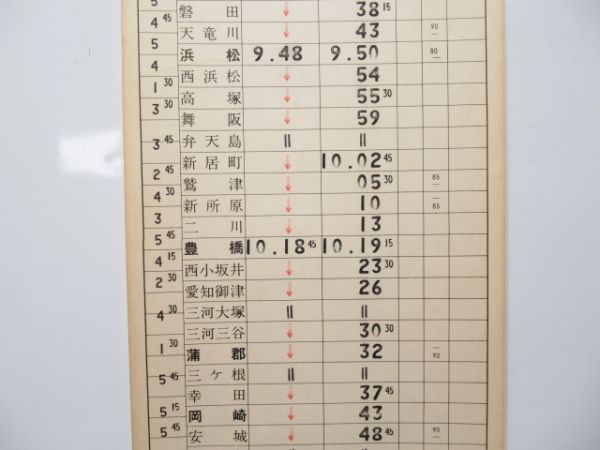 5 磐田 ↓ 38 15
4 45 天竜川 ↓ 43 90
5 浜松 9.48 9.50 80
西浜松 ↓ 54
1 30 高塚 ↓ 55 30
3 30 舞阪 ↓ 59
3 45 弁天島 || ||
新居町 ↓ 10.02 45
2 45 鷲津 ↓ 05 30 85
4 30 新所原 ↓ 10 85
3 二川 ↓ 13
5 45 豊橋 10.18 45 10.19 15
4 15 西小坂井 ↓ 23 30
2 30 愛知御津 ↓ 26
三河大塚 || ||
4 30 三河三谷 ↓ 30 30
1 30 蒲郡 ↓ 32 90
三ケ根 || ||
5 45 幸田 ↓ 37 45
5 15 岡崎 ↓ 43
5 45 安城 ↓ 48 45 90